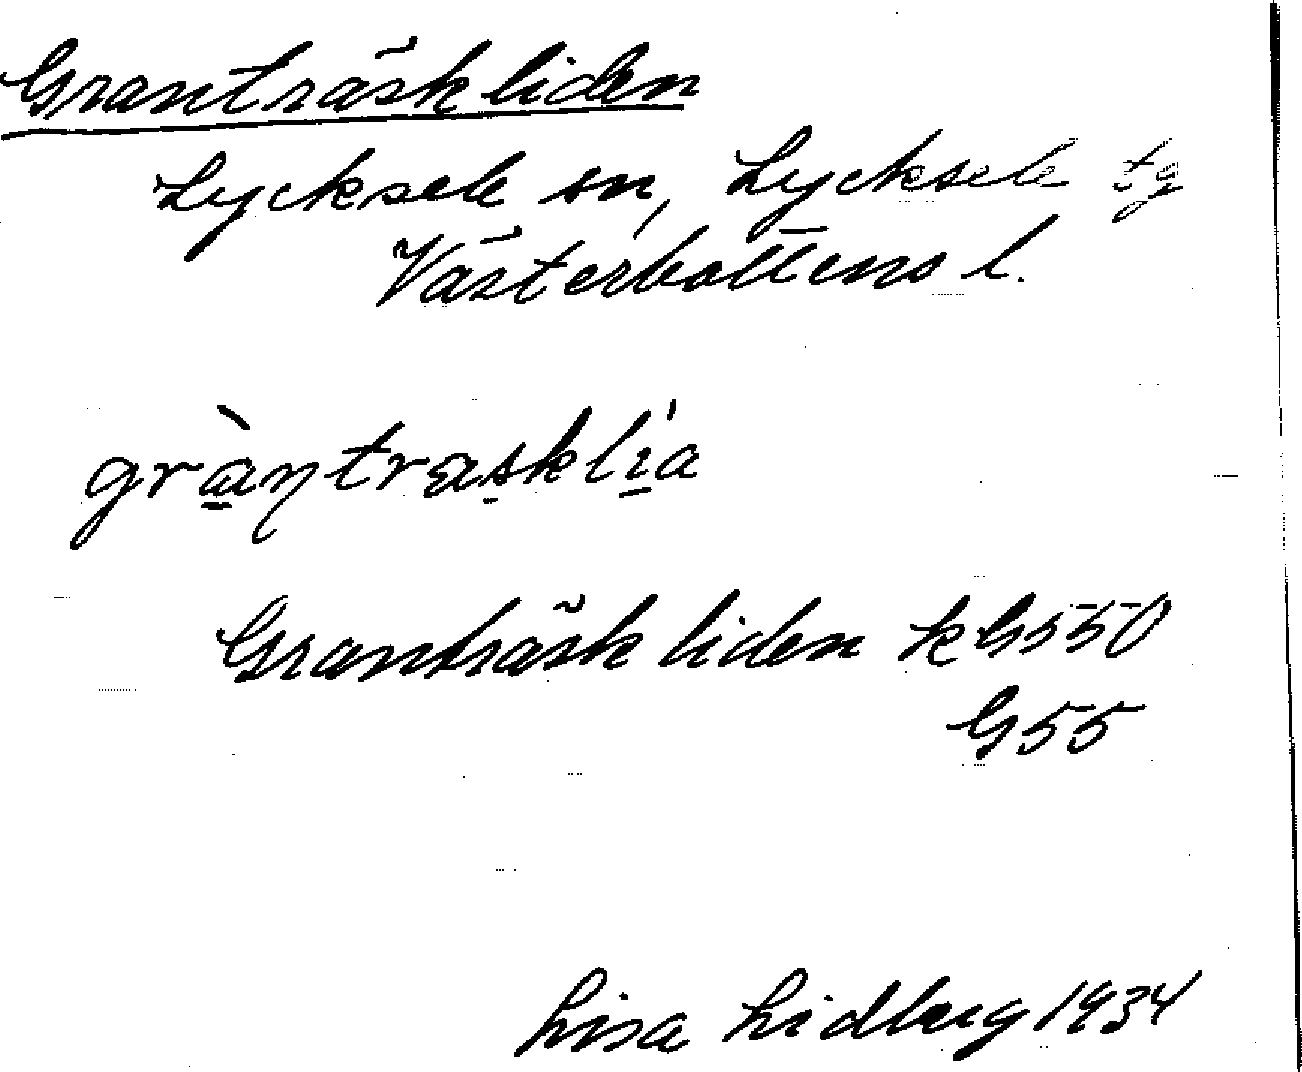 Granträskliden
Lycksele sn, Lycksele tg
Västerbottens l.
gràntrasklía
Granträskliden k G550
G55
Lisa Lidberg 1934